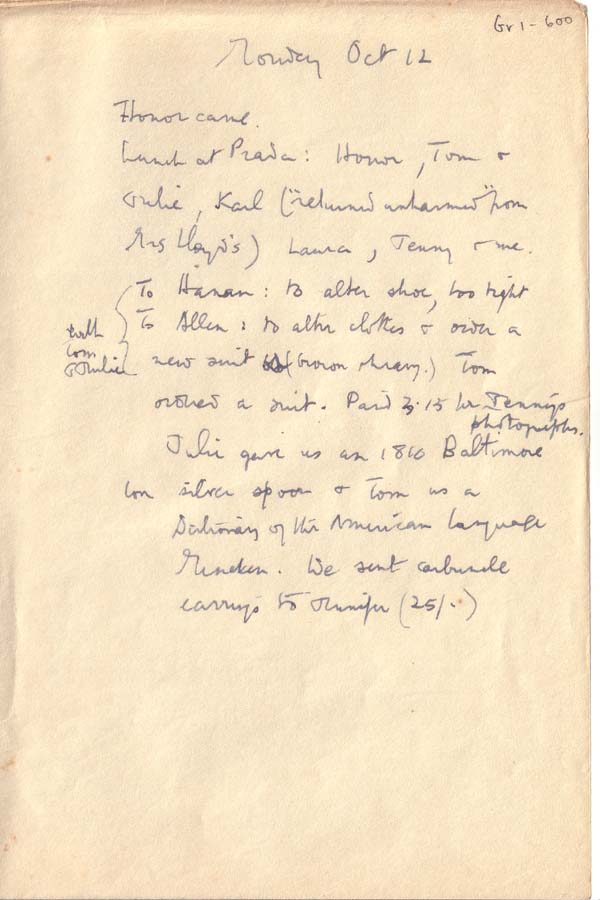 Gr 1 - 600
Monday Oct 12
Honor came.
Lunch at Prada: Honor, Tom &
Julie, Karl ("returned unharmed" from
Mrs Lloyd's) Laura, Jenny & me.
To Hanan: to alter shoe, too tight
To Allen: to alter clothes & order a
with
Tom
& Julie
new suit (brown & heavy.) Tom
ordered a suit. Paid 3.15 for Jenny's
photographs.
Julie gave us an 1810 Baltimore
silver spoon & Tom us a
Dictionary of the American Language
Mencken. We sent carbuncle
earrings to Jennifer (25/-)